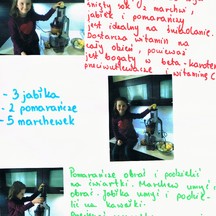 śnięty sok z marchwi,
jabłek i pomarańczy
jest idealny na śniadanie.
Dostarcza witamin na
cały dzień, ponieważ
jest bogaty w beta-karoten
przeciwutleniacze i witaminę C
- 3 jabłka
- 2 pomarańcze
- 5 marchewek
Pomarańcze obrać i podzielić
na ćwiartki. Marchew umyć i
obrać. Jabłka umyć i podzie-
lić na kawałki.